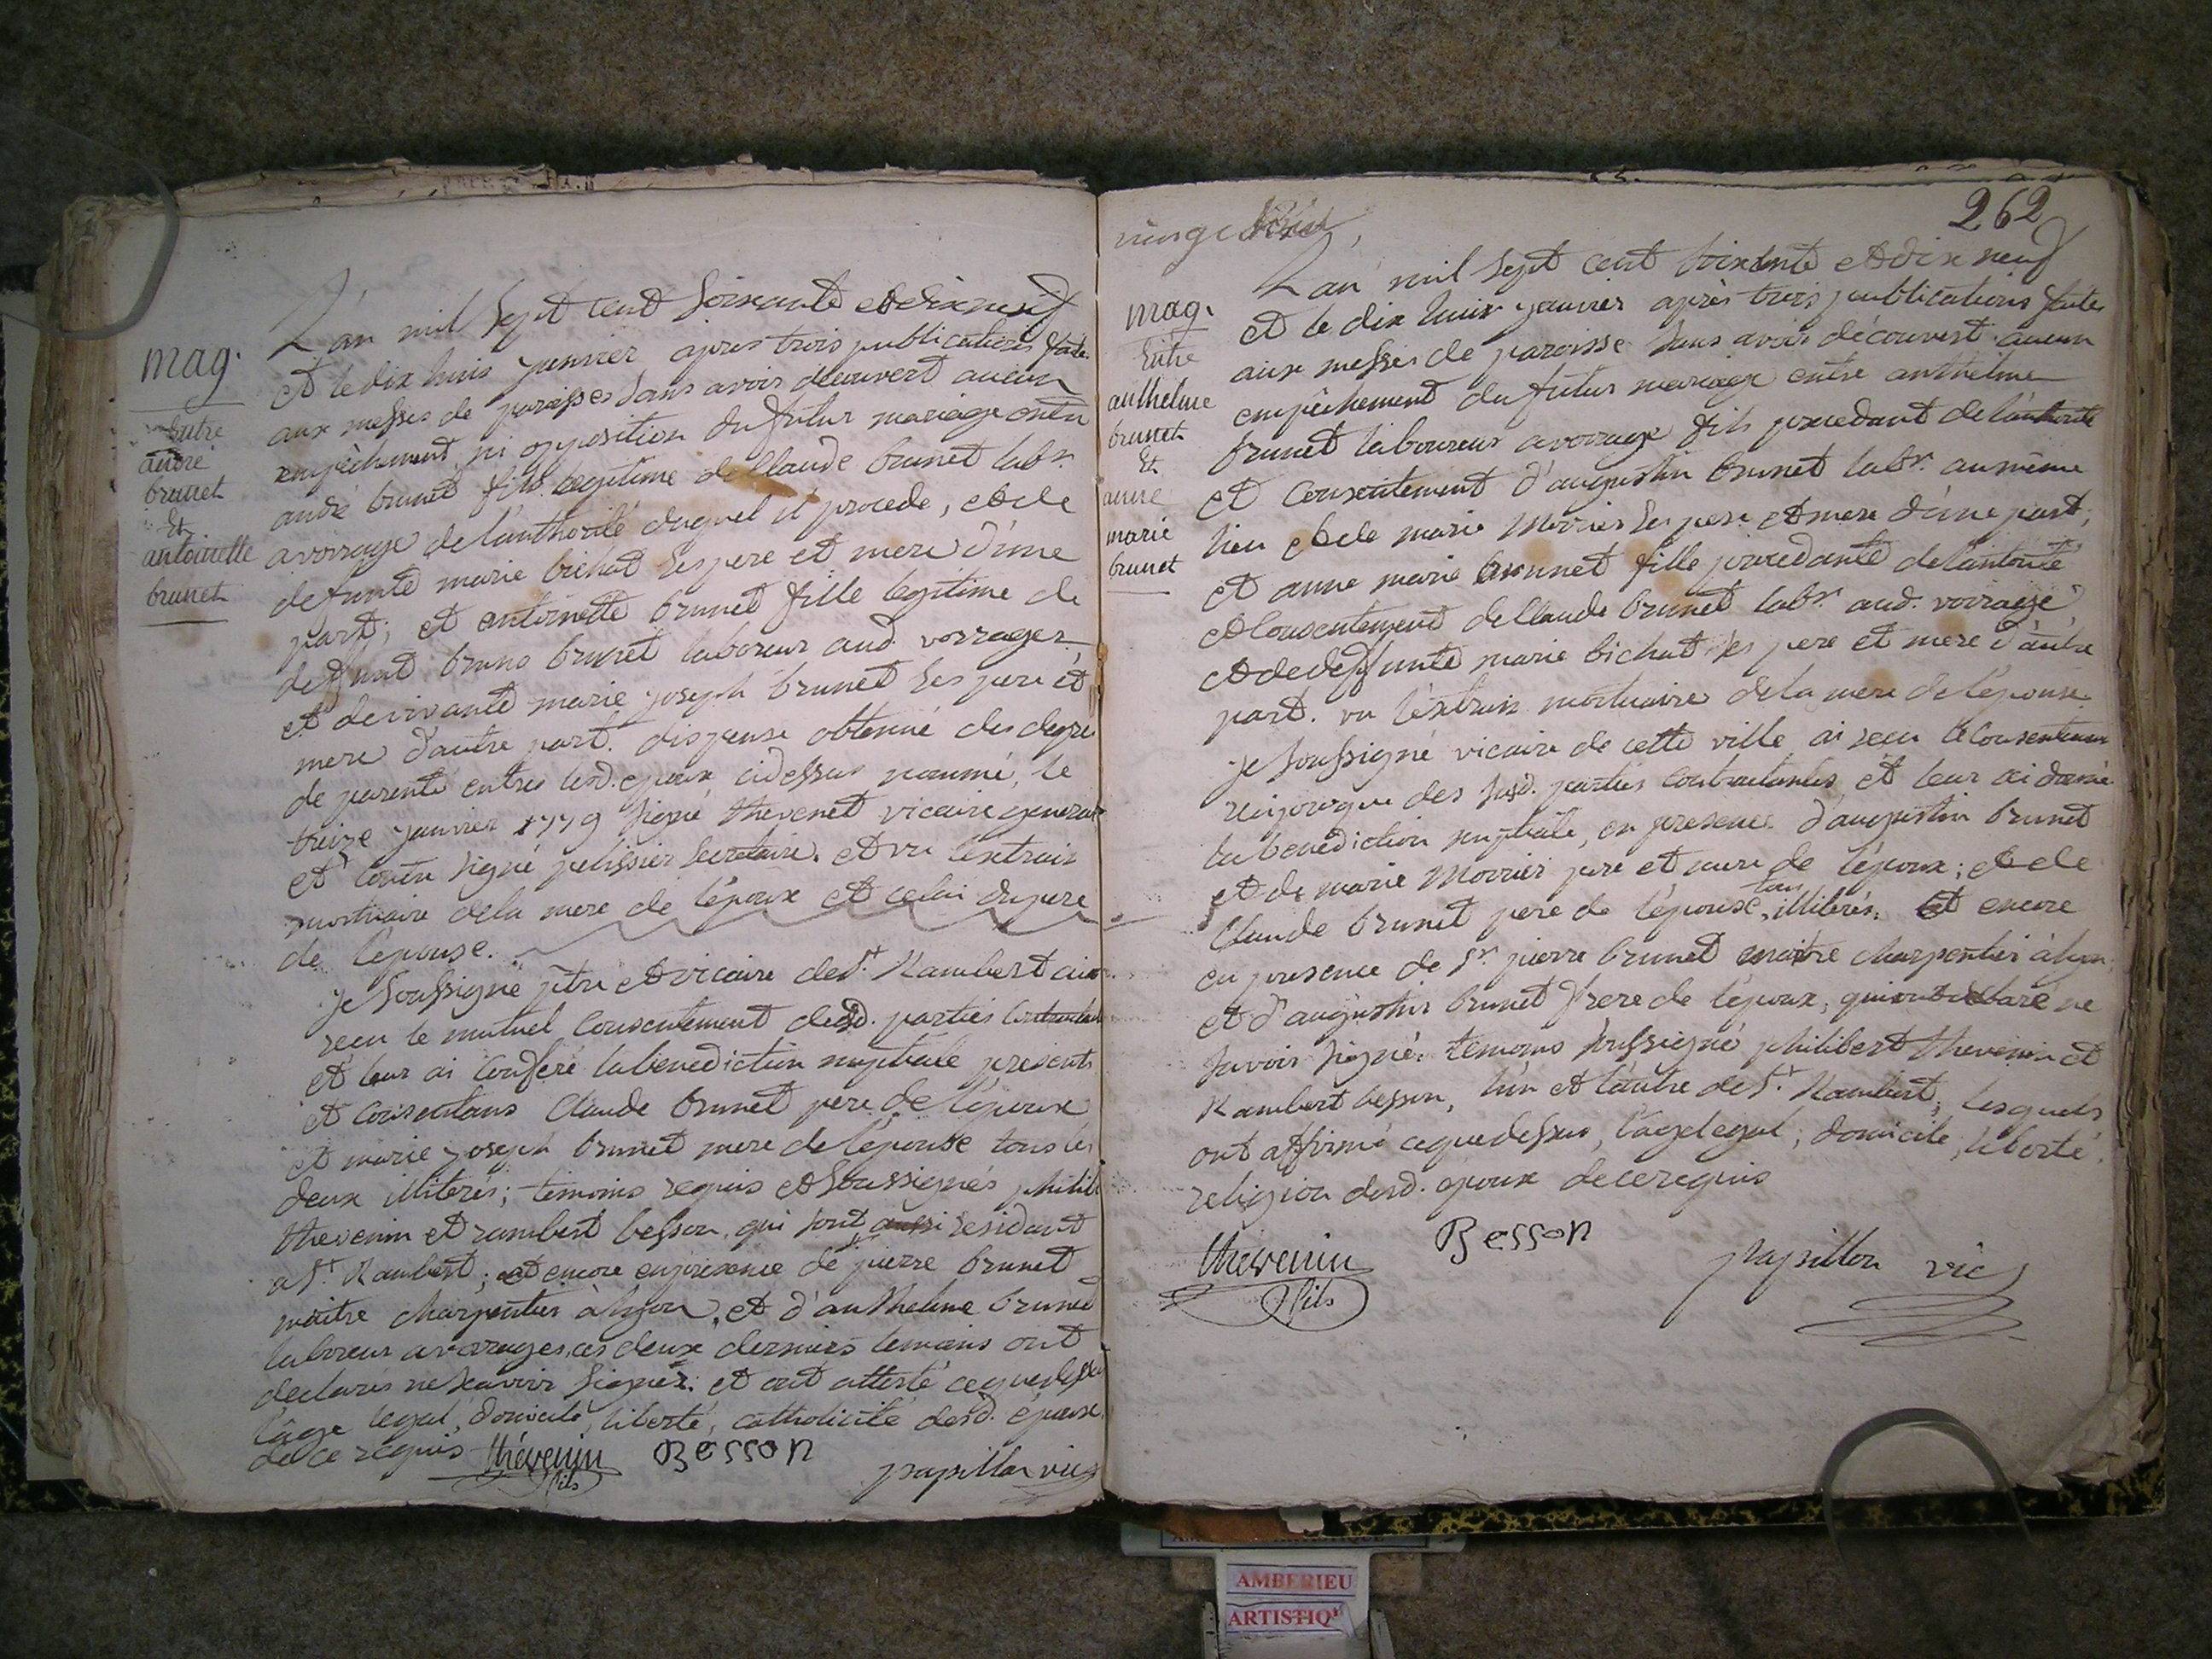 mag.
Entre
andré
brunet
Et
antoinette
brunet
L'an mil sept cent soixante et dix neuf
et le dix huit janvier apres trois publications faites
aux messes de paroisses sans avoir decouvert aucun
empêchement ni opposition du futur mariage entre
andré brunet fils legitime de Claude brunet labr.
a vorrage de l'authorité duquel il procede, et de
defunte marie bichat ses pere et mere d'une
part; et antoinette brunet fille legitime de
deffunt bruno brunet laboreur aud. vorrages
et de vivante marie joseph brunet ses pere et
mere d'autre part. dispense obtenue des degrés
de parenté entres lesd. epoux cidessus nommé, le
treize janvier 1779 signé thevenet vicaire general
et signé pelissier secretaire. et vu l'extrait
mortuaire de la mere de l'époux et celui du pere
de l'épouse.
je soussigné ptre et vicaire de St. Rambert ai
recu le mutuel consentement desd. parties contractantes
et leur ai conferé la benediction nuptiale presents
et consentans Claude brunet pere de l'époux
et marie joseph brunet mere de l'épouse tous les
deux illiterés; temoins requis et soussignés philib.
thevenin et rambert besson, qui sont residant
a St. Rambert; et encore en presence de pierre brunet
maitre charpentier à lyon, et d'anthelme brunet
laboreur a vorrages, ces deux derniers temoins ont
declarés ne scavoir signer. et ont attesté ce que dessus
l'âge legal, domicile, liberté, catholicité desd. époux
de ce requis thévenin fils Besson papillon vic
262
mag.
Entre
anthelme
brunet
Et
anne
marie
brunet
L'an mil sept cent soixante et dix neuf
et le dix huit janvier après trois publications faites
aux messes de paroisse sans avoir découvert aucun
empêchement du futur mariage entre anthelme
brunet laboureur a vorrage fils procedant de l'authorité
et consentement d'augustin brunet labr. au même
lieu et de marie Morrier ses pere et mere d'une part;
et anne marie brunet fille procedante de l'autorité
et consentement de Claude brunet labr. aud. vorrage
et de deffunte marie bichat ses pere et mere d'autre
part. vu l'extrait mortuaire de la mere de l'épouse.
je soussigné vicaire de cette ville ai recu le consentement
reciproque des susd. parties contractantes et leur ai donné
la benediction nuptiale, en presence d'augustin brunet
et de marie Morrier pere et mere de l'époux; et de
Claude brunet pere de l'épouse, tous illiterés. Et encore
en presence de Sr. pierre brunet maitre charpentier à lyon
et d'augustin brunet frere de l'époux, qui ont declaré ne
savoir signé. temoins soussigné philibert thevenin et
Rambert besson, l'un et l'autre de St. Rambert; lesquels
ont affirmé ce que dessus, l'age legal; domicile, liberté,
religion desd. epoux de ce requis
thevenin fils Besson papillon vic
AMBERIEU
ARTISTIQ